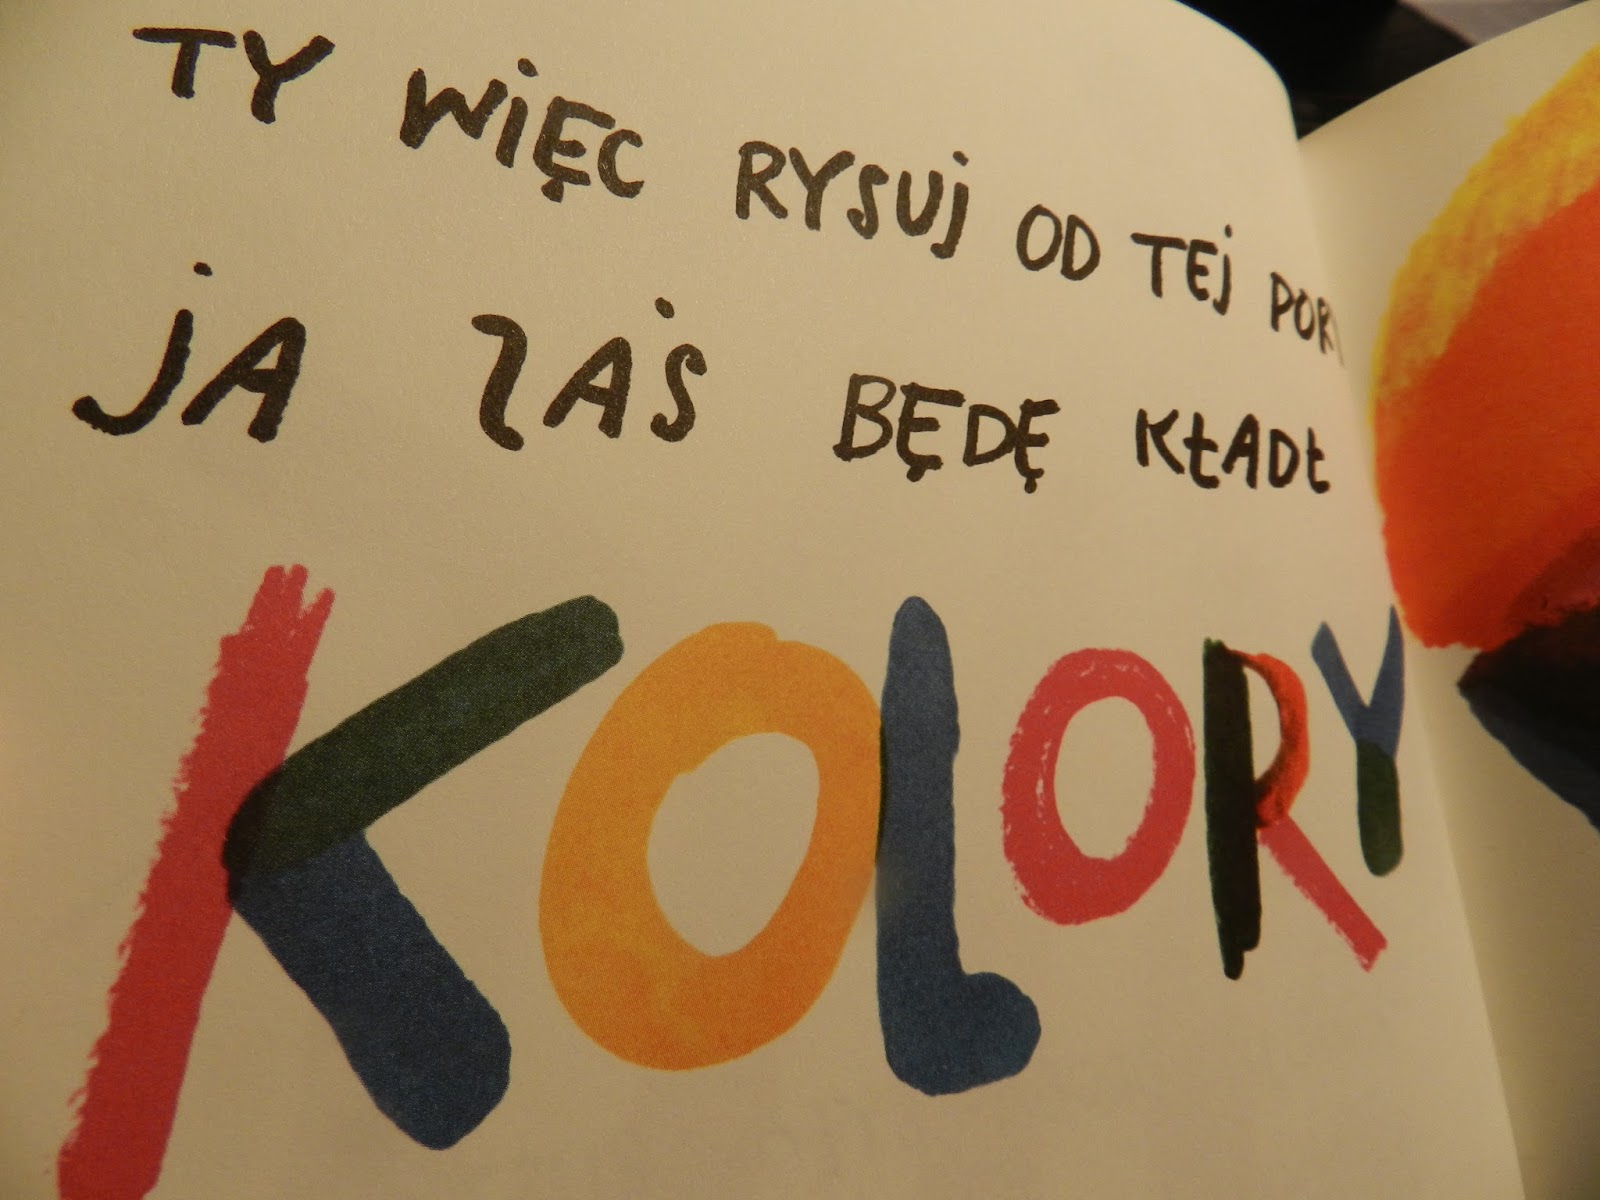 TY WIĘC RYSUJ OD TEJ PORY
JA ZAŚ BĘDĘ KŁADŁ
KOLORY